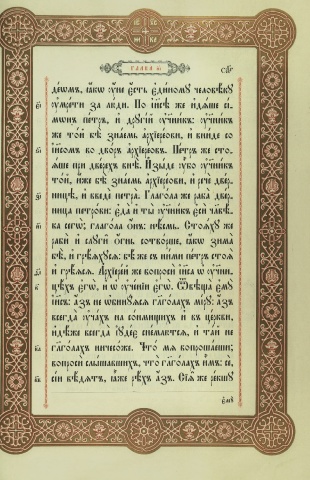 ГЛАВА
деѡмъ, ꙗ҆́кѡ ᲂу҆́не є҆́сть є҆ди́ному человѣ́кꙋ
ᲂу҆мре́ти за лю́ди. По і҆и҃сѣ же и҆дѧ́ше сі́-
мѡнъ пе́тръ, и҆ дрꙋгі́й ᲂу҆чн҃къ: ᲂу҆чн҃къ
же то́й бѣ̀ зна́емь а҆рхїере́ови, и҆ вни́де со
і҆и҃сомъ во дво́ръ а҆рхїере́овъ. Пе́тръ же сто-
ѧ́ше при две́рехъ внѣ̀. И҆зы́де ᲂу҆̀бо ᲂу҆чн҃къ
то́й, и҆́же бѣ̀ зна́емь а҆рхїере́ови, и҆ речѐ две́р-
ницѣ, и҆ введѐ петра̀. Глаго́ла же раба̀ две́р-
ница петро́ви: є҆да̀ и҆ ты̀ ᲂу҆чн҃къ є҆сѝ чл҃вѣ́-
ка сегѡ̀; глаго́ла ѻ҆́нъ: нѣ́смь. Стоѧ́хꙋ же
рабѝ и҆ слꙋги̑ ѻ҆́гнь сотво́рше, ꙗ҆́кѡ зима̀
бѣ̀, и҆ грѣ́ѧхꙋсѧ: бѣ́ же съ ни́ми пе́тръ стоѧ̀
и҆ грѣ́ѧсѧ. А҆рхїере́й же вопросѝ і҆и҃са ѡ҆ ᲂу҆чн҃-
цѣ́хъ є҆гѡ̀, и҆ ѡ҆ ᲂу҆че́нїи є҆гѡ̀. Ѿвѣща̀ є҆мꙋ̀
і҆и҃съ: а҆́зъ не ѡ҆бинꙋ́ѧсѧ гл҃го́лахъ мі́рꙋ: а҆́зъ
всегда̀ ᲂу҆ча́хъ на со́нмищихъ и҆ въ це́ркви,
и҆дѣ́же всегда̀ і҆ꙋде́є снема́ютсѧ, и҆ та́й не
гл҃го́лахъ ничесо́же. Что́ мѧ вопроша́еши;
вопросѝ слы́шавшихъ, что̀ гл҃го́лахъ и҆̀мъ: сѐ,
сі́и вѣ́дѧтъ, ꙗ҆̀же рѣ́хъ а҆́зъ. Сїѧ̑ же ре́кшꙋ
є҆мꙋ̀